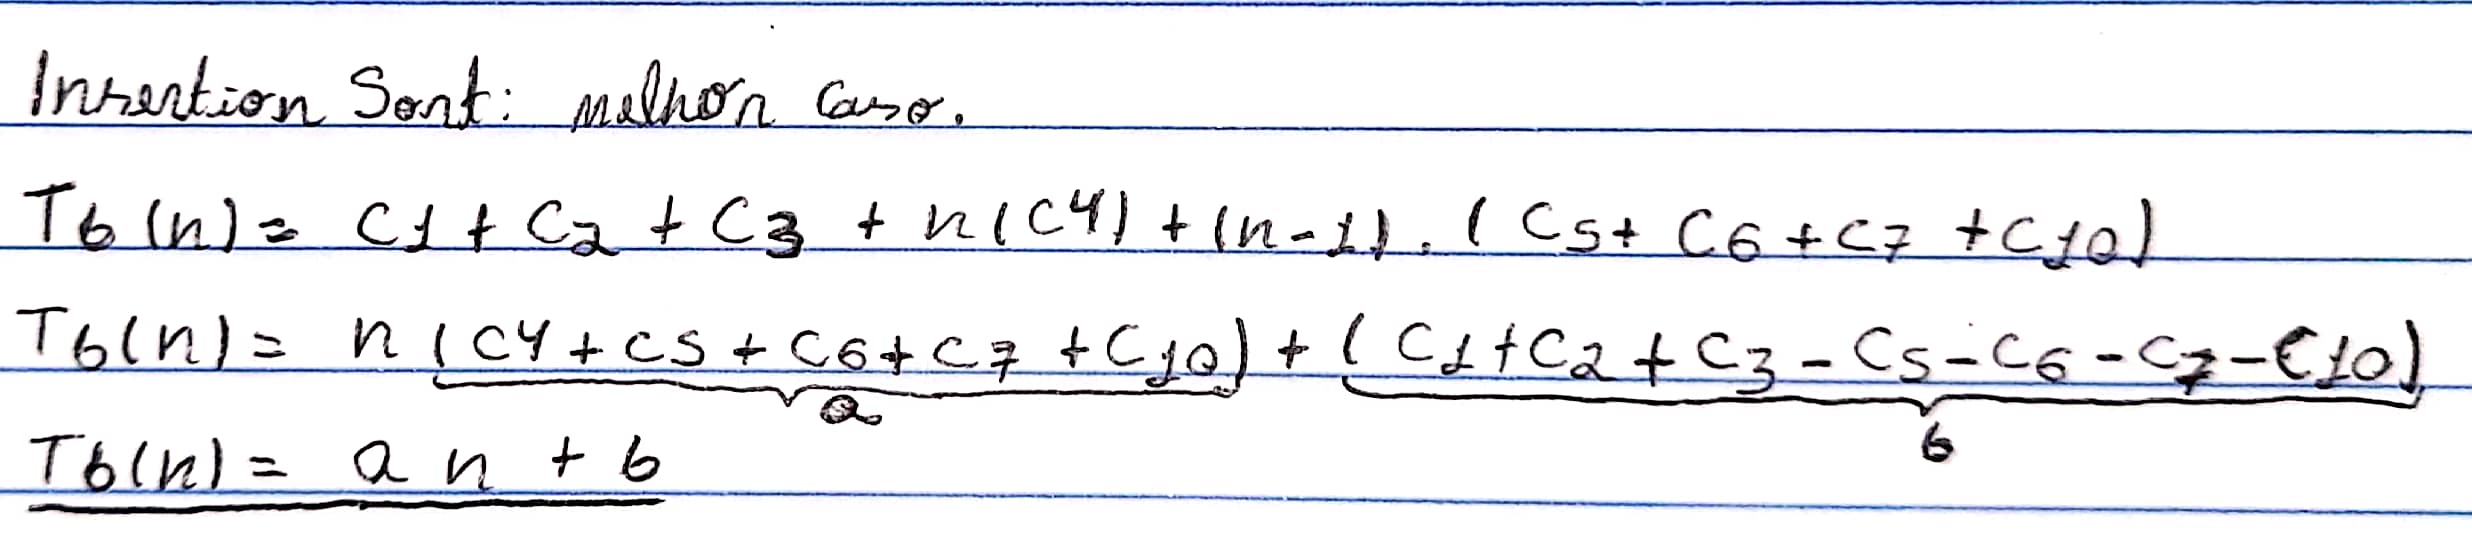 Insertion Sort: melhor caso.
Tb(n) = C1 + C2 + C3 + n(C4) + (n-1).(C5 + C6 + C7 + C10)
Tb(n) = n(C4 + C5 + C6 + C7 + C10) + (C1 + C2 + C3 - C5 - C6 - C7 - C10)
a b
Tb(n) = an + b